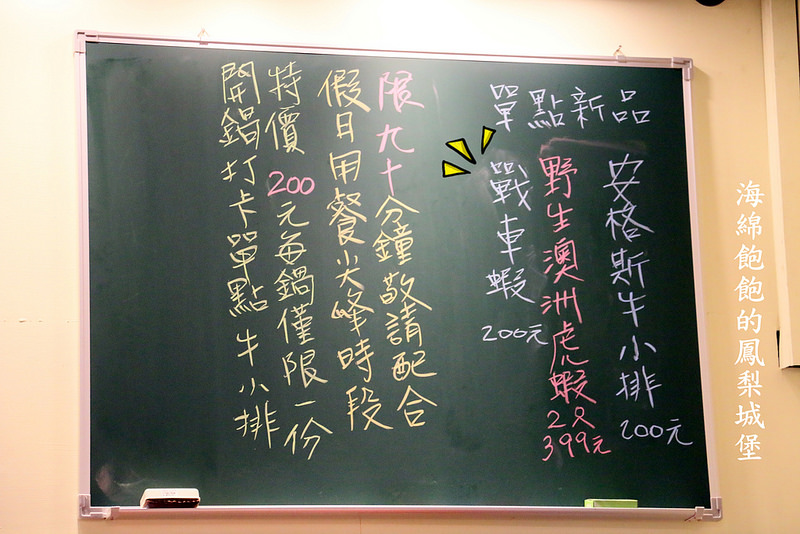 單點新品
安格斯牛小排 200元
野生澳洲虎蝦 2只 399元
戰車蝦 200元
限九十分鐘敬請配合
假日用餐尖峰時段
特價200元每鍋僅限一份
開鍋打卡單點牛小排
海綿飽飽的鳳梨城堡